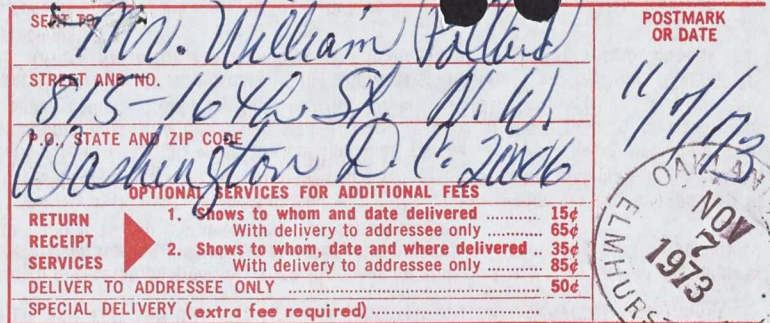 SENT TO
Mr. William Pollard
POSTMARK
OR DATE
STREET AND NO.
815-16th St. N.W.
11/7/73
P.O. STATE AND ZIP CODE
Washington D.C. 20006
OPTIONAL SERVICES FOR ADDITIONAL FEES
RETURN
RECEIPT
SERVICES
1. Shows to whom and date delivered .......... 15¢
With delivery to addressee only .......... 65¢
2. Shows to whom, date and where delivered .. 35¢
With delivery to addressee only .......... 85¢
DELIVER TO ADDRESSEE ONLY .......... 50¢
SPECIAL DELIVERY (extra fee required) ..........
NOV
7
1973